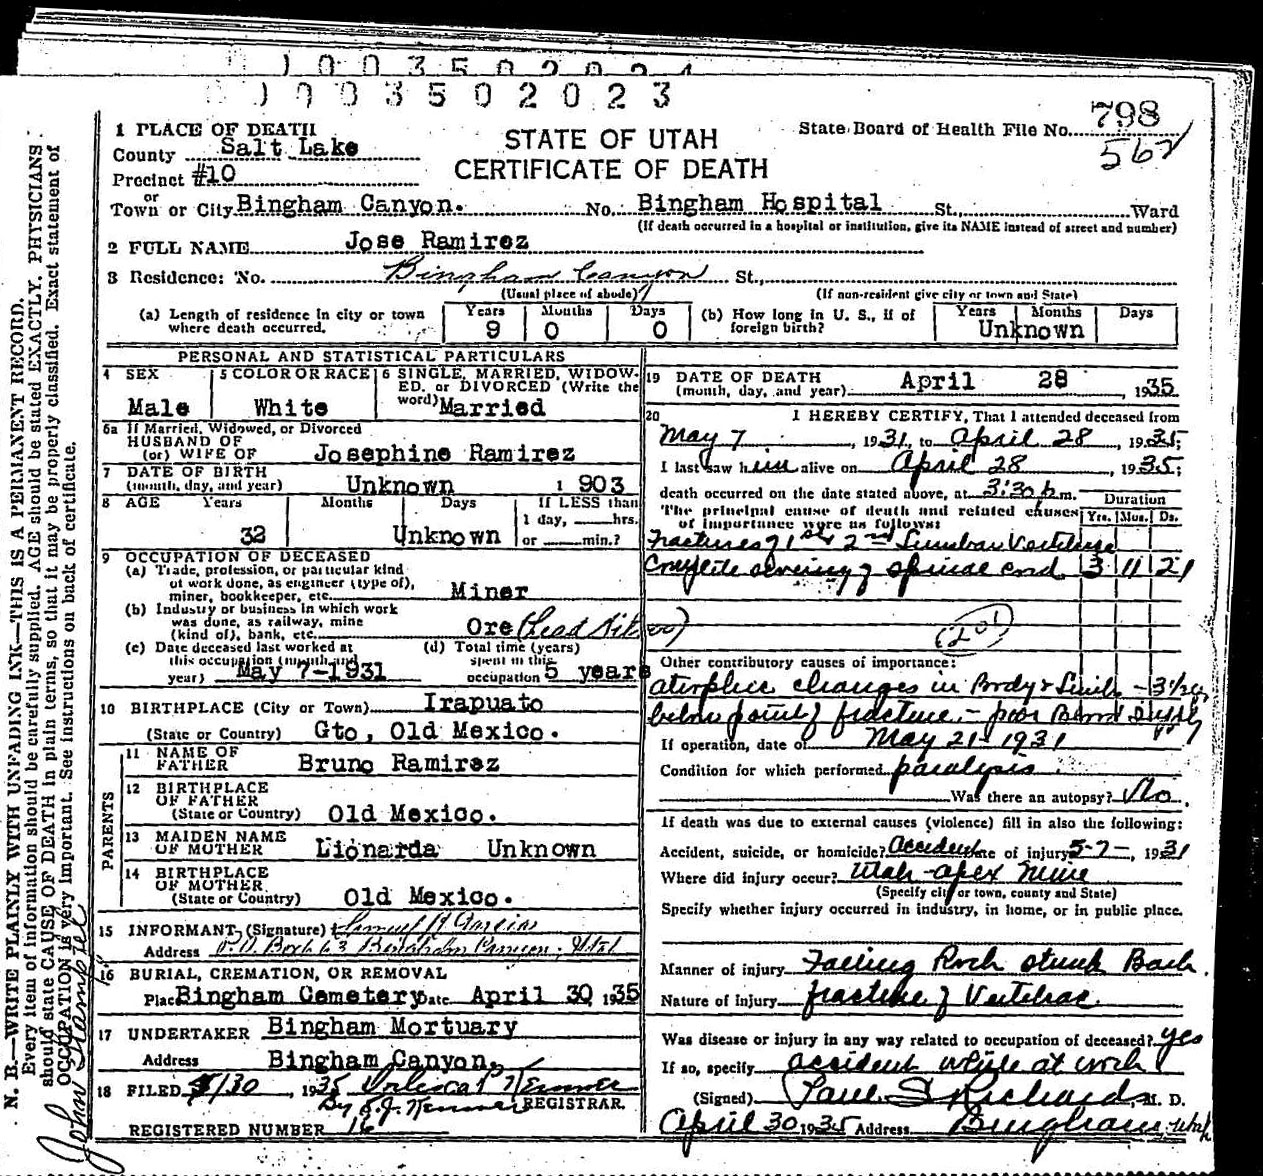 0003502023
1 PLACE OF DEATH
County Salt Lake
Precinct #10
or
Town or City Bingham Canyon. No. Bingham Hospital St., Ward
(If death occurred in a hospital or institution, give its NAME instead of street and number)
STATE OF UTAH
CERTIFICATE OF DEATH
State Board of Health File No. 798
562
2 FULL NAME Jose Ramirez
3 Residence: No. Bingham Canyon St.,
(Usual place of abode) (If non-resident give city or town and State)
(a) Length of residence in city or town where death occurred. Years 9 Months 0 Days 0
(b) How long in U. S., if of foreign birth? Years Months Days Unknown
PERSONAL AND STATISTICAL PARTICULARS
4 SEX Male
5 COLOR OR RACE White
6 SINGLE, MARRIED, WIDOWED, or DIVORCED (Write the word) Married
6a If Married, Widowed, or Divorced
HUSBAND OF
(or) WIFE OF Josephine Ramirez
7 DATE OF BIRTH
(month, day, and year) Unknown 1903
8 AGE Years 32 Months Days Unknown
If LESS than
1 day, hrs.
or min.?
9 OCCUPATION OF DECEASED
(a) Trade, profession, or particular kind
of work done, as engineer (type of),
miner, bookkeeper, etc. Miner
(b) Industry or business in which work
was done, as railway, mine
(kind of), bank, etc. Ore (Lead
(c) Date deceased last worked at
this occupation (month and
year) May 7-1931
(d) Total time (years)
spent in this
occupation 5 years
10 BIRTHPLACE (City or Town) Irapuato
(State or Country) Gto, Old Mexico.
PARENTS
11 NAME OF
FATHER Bruno Ramirez
12 BIRTHPLACE
OF FATHER
(State or Country) Old Mexico.
13 MAIDEN NAME
OF MOTHER Lionarda Unknown
14 BIRTHPLACE
OF MOTHER
(State or Country) Old Mexico.
15 INFORMANT (Signature) Samuel H Garcia
Address P.O. Box 63 Bingham Canyon, Utah
16 BURIAL, CREMATION, OR REMOVAL
Place Bingham Cemetery Date April 30 1935
17 UNDERTAKER Bingham Mortuary
Address Bingham Canyon.
18 FILED 4/30 1935
REGISTRAR.
REGISTERED NUMBER 16
19 DATE OF DEATH
(month, day, and year) April 28 1935
20 I HEREBY CERTIFY, That I attended deceased from
May 7, 1931, to April 28, 1935;
I last saw him alive on April 28, 1935;
death occurred on the date stated above, at 3:30 p.m.
The principal cause of death and related causes
of importance were as follows:
Duration
Yrs. Mos. Ds.
Fractures of 1st & 2nd Lumbar Vertebrae
Complete severing of spinal cord 3 11 21
(201)
Other contributory causes of importance:
atrophic changes in Body & Limbs - 3 1/2 yrs
below point of fracture. - poor Blood Supply
If operation, date of May 21 - 1931
Condition for which performed paralysis.
Was there an autopsy? No.
If death was due to external causes (violence) fill in also the following:
Accident, suicide, or homicide? Accident Date of injury 5-7-, 1931
Where did injury occur? Utah-Apex Mine
(Specify city or town, county and State)
Specify whether injury occurred in industry, in home, or in public place.
Manner of injury Falling Rock struck Back.
Nature of injury fracture of Vertebrae.
Was disease or injury in any way related to occupation of deceased? yes
If so, specify accident while at work
(Signed) Paul S Richards, M. D.
April 30 1935 Address Bingham, Utah
N. B.—WRITE PLAINLY WITH UNFADING INK—THIS IS A PERMANENT RECORD.
Every item of information should be carefully supplied. AGE should be stated EXACTLY. PHYSICIANS
should state CAUSE OF DEATH in plain terms, so that it may be properly classified. Exact statement of
OCCUPATION is very important. See instructions on back of certificate.